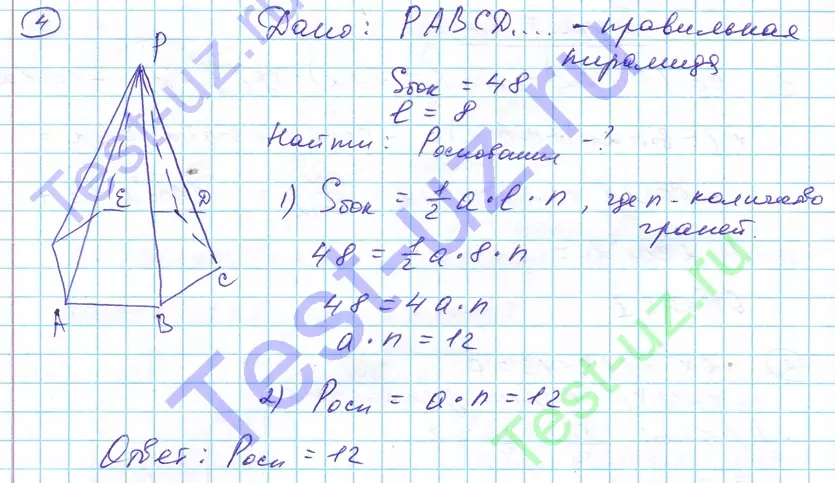 4
Дано: PABCD.... - правильная
пирамида
Sбок = 48
l = 8
Найти: Pоснования - ?
1) Sбок = 1/2 a · l · n, где n - количество
граней.
48 = 1/2 a · 8 · n
48 = 4a · n
a · n = 12
2) Pосн = a · n = 12
Ответ: Pосн = 12
P
E
D
C
A
B
Test-uz.ru
Test-uz.ru
Test-uz.ru